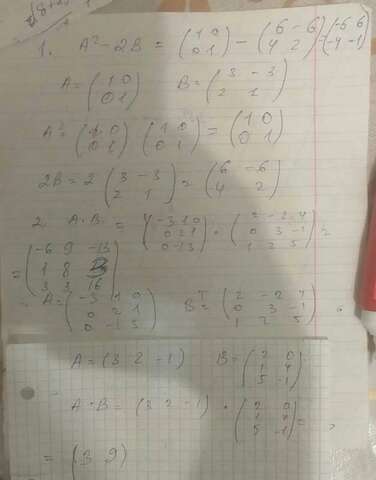 1. A² - 2B = (1 0 / 0 1) - (6 -6 / 4 2) = (-5 6 / -4 -1)
A = (1 0 / 0 1) B = (3 -3 / 2 1)
A² = (1 0 / 0 1) (1 0 / 0 1) = (1 0 / 0 1)
2B = 2 (3 -3 / 2 1) = (6 -6 / 4 2)
2. A·B = (-3 1 0 / 0 2 1 / 0 -1 3) · (2 -2 4 / 0 3 -1 / 1 2 5) =
= (-6 9 -13 / 1 8 3 / 3 3 16)
A = (-3 1 0 / 0 2 1 / 0 -1 3) Bᵀ = (2 -2 4 / 0 3 -1 / 1 2 5)
A = (3 2 -1) B = (2 0 / 1 4 / 5 -1)
A·B = (3 2 -1) · (2 0 / 1 4 / 5 -1) =
= (3 9)